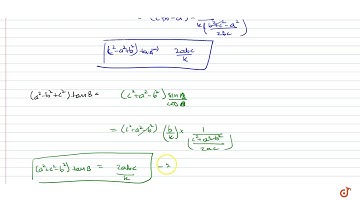 k(b²+c²-a²)
2bc
(c²-a²+b²) tan A = 2abc/k
(a²-b²+c²) tan B = (c²+a²-b²) sin B/cos B
= (c²+a²-b²) (b/k) × 1/((c²+a²-b²)/2ac)
(a²+c²-b²) tan B = 2abc/k - 2